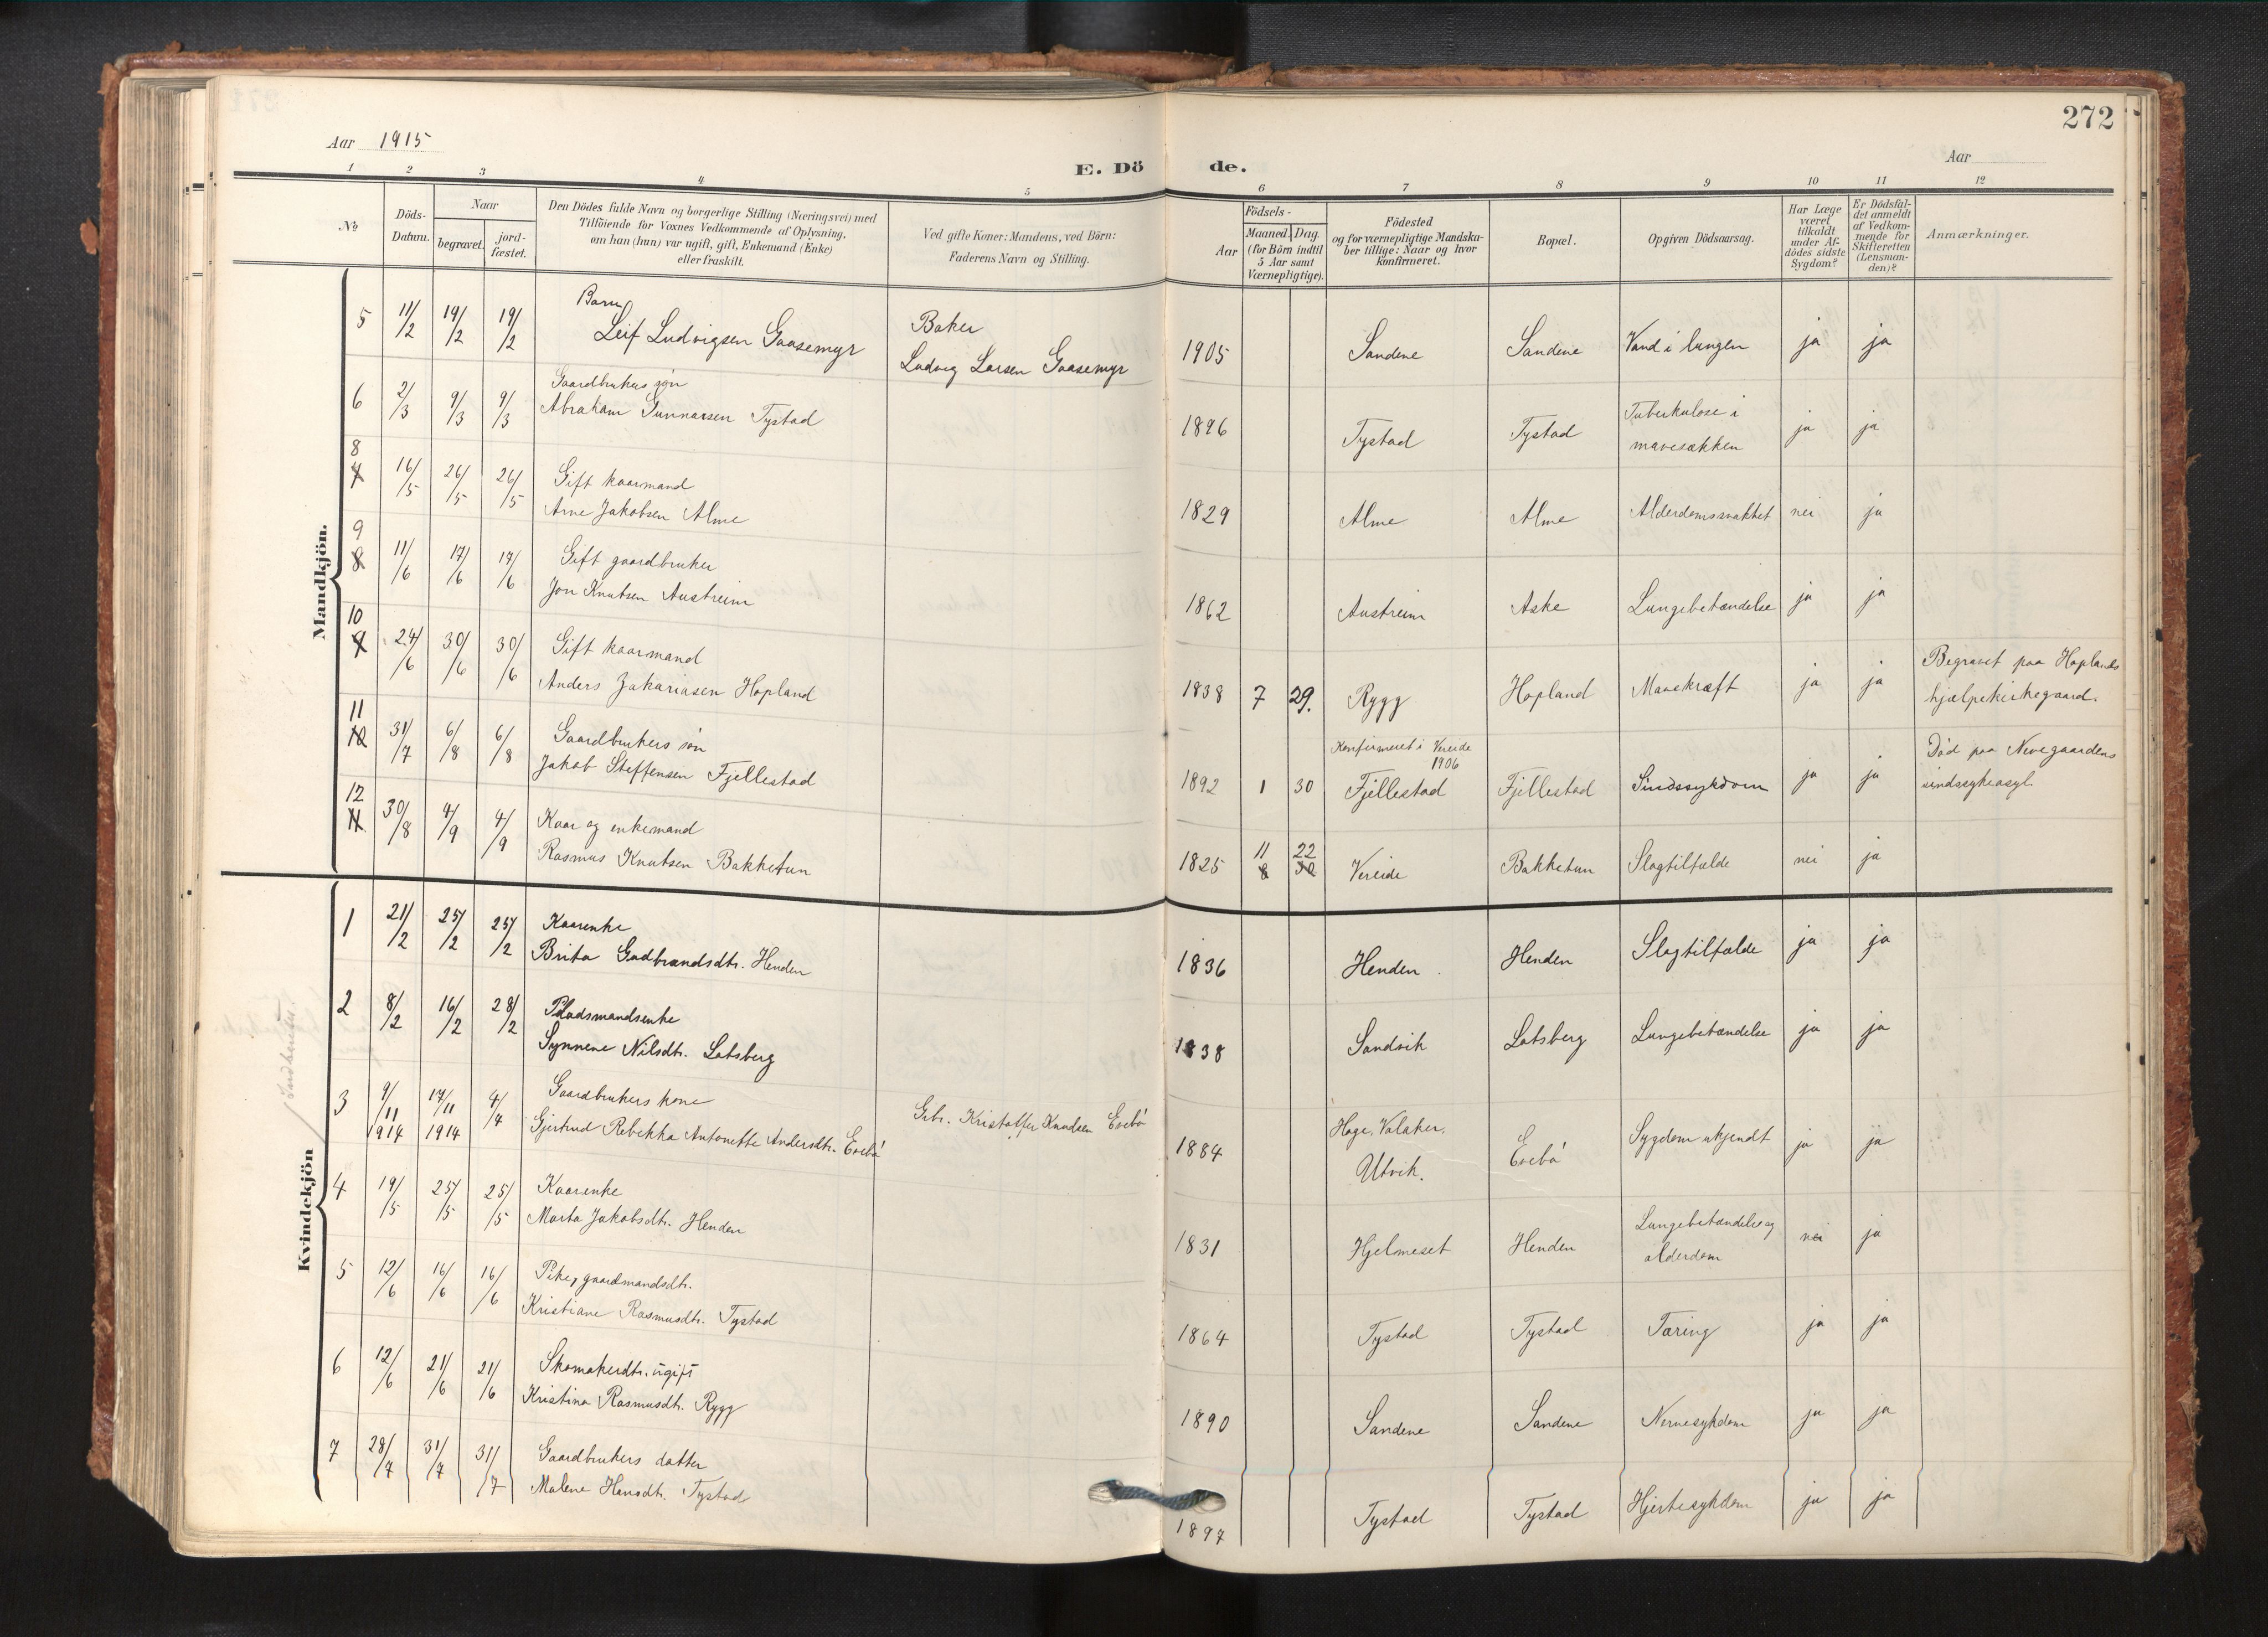 272
Aar 1915
Aar
E. Dö de.
1 2 3 4 5 6 7 8 9 10 11 12
No
Döds-
Datum.
Naar
begravet.
jord-
fæstet.
Den Dödes fulde Navn og borgerlige Stilling (Næringsvei) med
Tilföiende for Voxnes Vedkommende af Oplysning,
om han (hun) var ugift, gift, Enkemand (Enke)
eller fraskilt.
Ved gifte Koner: Mandens, ved Börn:
Faderens Navn og Stilling.
Födsels-
Aar
Maaned. Dag.
(for Börn indtil
5 Aar samt
Værnepligtige).
Födested
og for værnepligtige Mandska-
ber tillige: Naar og hvor
konfirmeret.
Bopæl.
Opgiven Dödsaarsag.
Har Læge
været
tilkaldt
under Af-
dödes sidste
Sygdom?
Er Dödsfal-
det anmeldt
af Vedkom-
mende for
Skifteretten
(Lensman-
den)?
Anmærkninger.
Mandkjön.
5 11/2 19/2 19/2 Barn
Leif Ludvigsen Gaasemyr
Baker
Ludvig Larsen Gaasemyr
1905 Sandene Sandene Vand i lungen ja ja
6 2/3 9/3 9/3 Gaardbrukers søn
Abraham Gunnarsen Tystad
1896 Tystad Tystad Tuberkulose i
mavesækken ja ja
8
7 16/5 26/5 26/5 Gift kaarmand
Arne Jakobsen Alme
1829 Alme Alme Alderdomssvakhet nei ja
9
8 11/6 17/6 17/6 Gift gaardbruker
Jon Knutsen Austreim
1862 Austreim Aske Lungebetændelse ja ja
10
9 24/6 30/6 30/6 Gift kaarmand
Anders Zakariasen Hopland
1838 7 29. Rygg Hopland Mavekræft ja ja
Begravet paa Hoplands
hjælpekirkegaard.
11
10 31/7 6/8 6/8 Gaardbrukers søn
Jakob Steffensen Fjellestad
Konfirmeret i Vereide
1906
1892 1 30 Fjellestad Fjellestad Sindssykdom ja ja
Død paa Nevegaardens
sindssykeasyl.
12
11. 30/8 4/9 4/9 Kaar og enkemand
Rasmus Knutsen Bakketun
11 22
1825 8 30 Vereide Bakketun Slagtilfælde nei ja
Kvindekjön
1 21/2 25/2 25/2 Kaarenke
Brita Gudbrandsdtr. Henden
1836 Henden Henden Slagtilfælde ja ja
2 8/2 16/2 28/2 Pladsmandsenke
Synnene Nilsdtr. Lotsberg
1838 Sandvik Lotsberg Lungebetændelse ja ja
3 9/11 1914 17/11 1914 4/4 Gaardbrukers kone
Gjertrud Rebekka Antonette Andersdtr. Evebø
Gbr. Kristoffer Knudsen Evebø
1884 Hage, Valaker,
Utvik. Evebø Sygdom ukjendt ja ja
4 19/5 25/5 25/5 Kaarenke
Marta Jakobsdtr. Henden
1831 Hjelmeset Henden Lungebetændelse og
alderdom nei ja
5 12/6 16/6 16/6 Pike, gaardmandsdtr.
Kristiane Rasmusdtr. Tystad
1864 Tystad Tystad Tæring ja ja
6 12/6 21/6 21/6 Skomakerdtr. ugift
Kristina Rasmusdtr. Rygg
1890 Sandene Sandene Nervesykdom ja ja
7 28/7 31/7 31/7 Gaardbrukers datter
Malene Hansdtr. Tystad
1897 Tystad Tystad Hjertesykdom ja ja